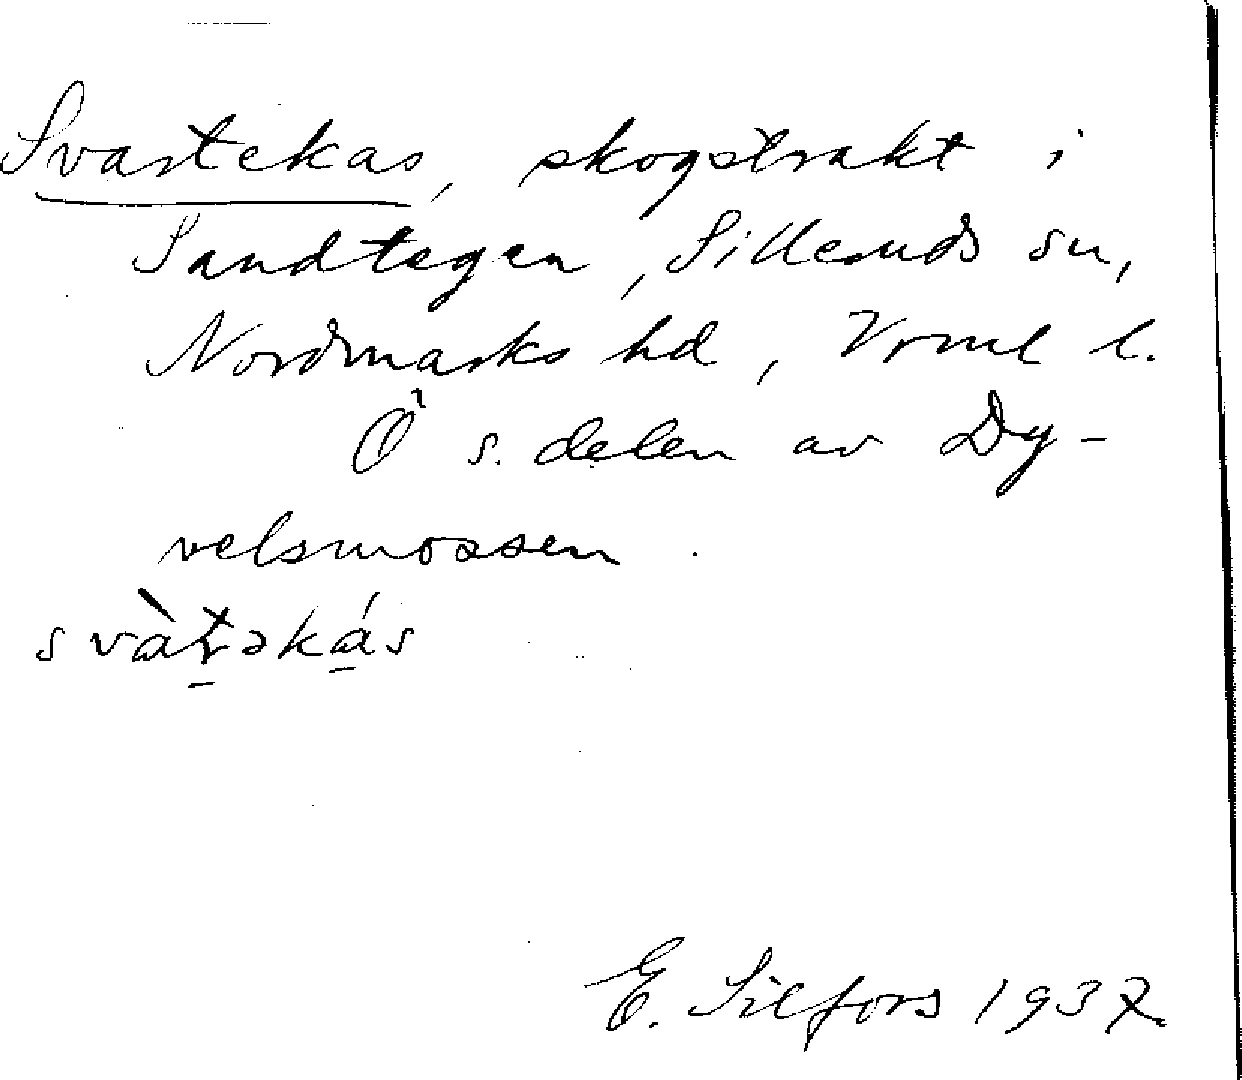 Svartekas, skogstrakt i
Sandtegen, Silleruds sn,
Nordmarks hd, Vrml l.
Ö s. delen av Dy-
velsmossen.
svàt̠əká̠s
E. Silfors 1937.